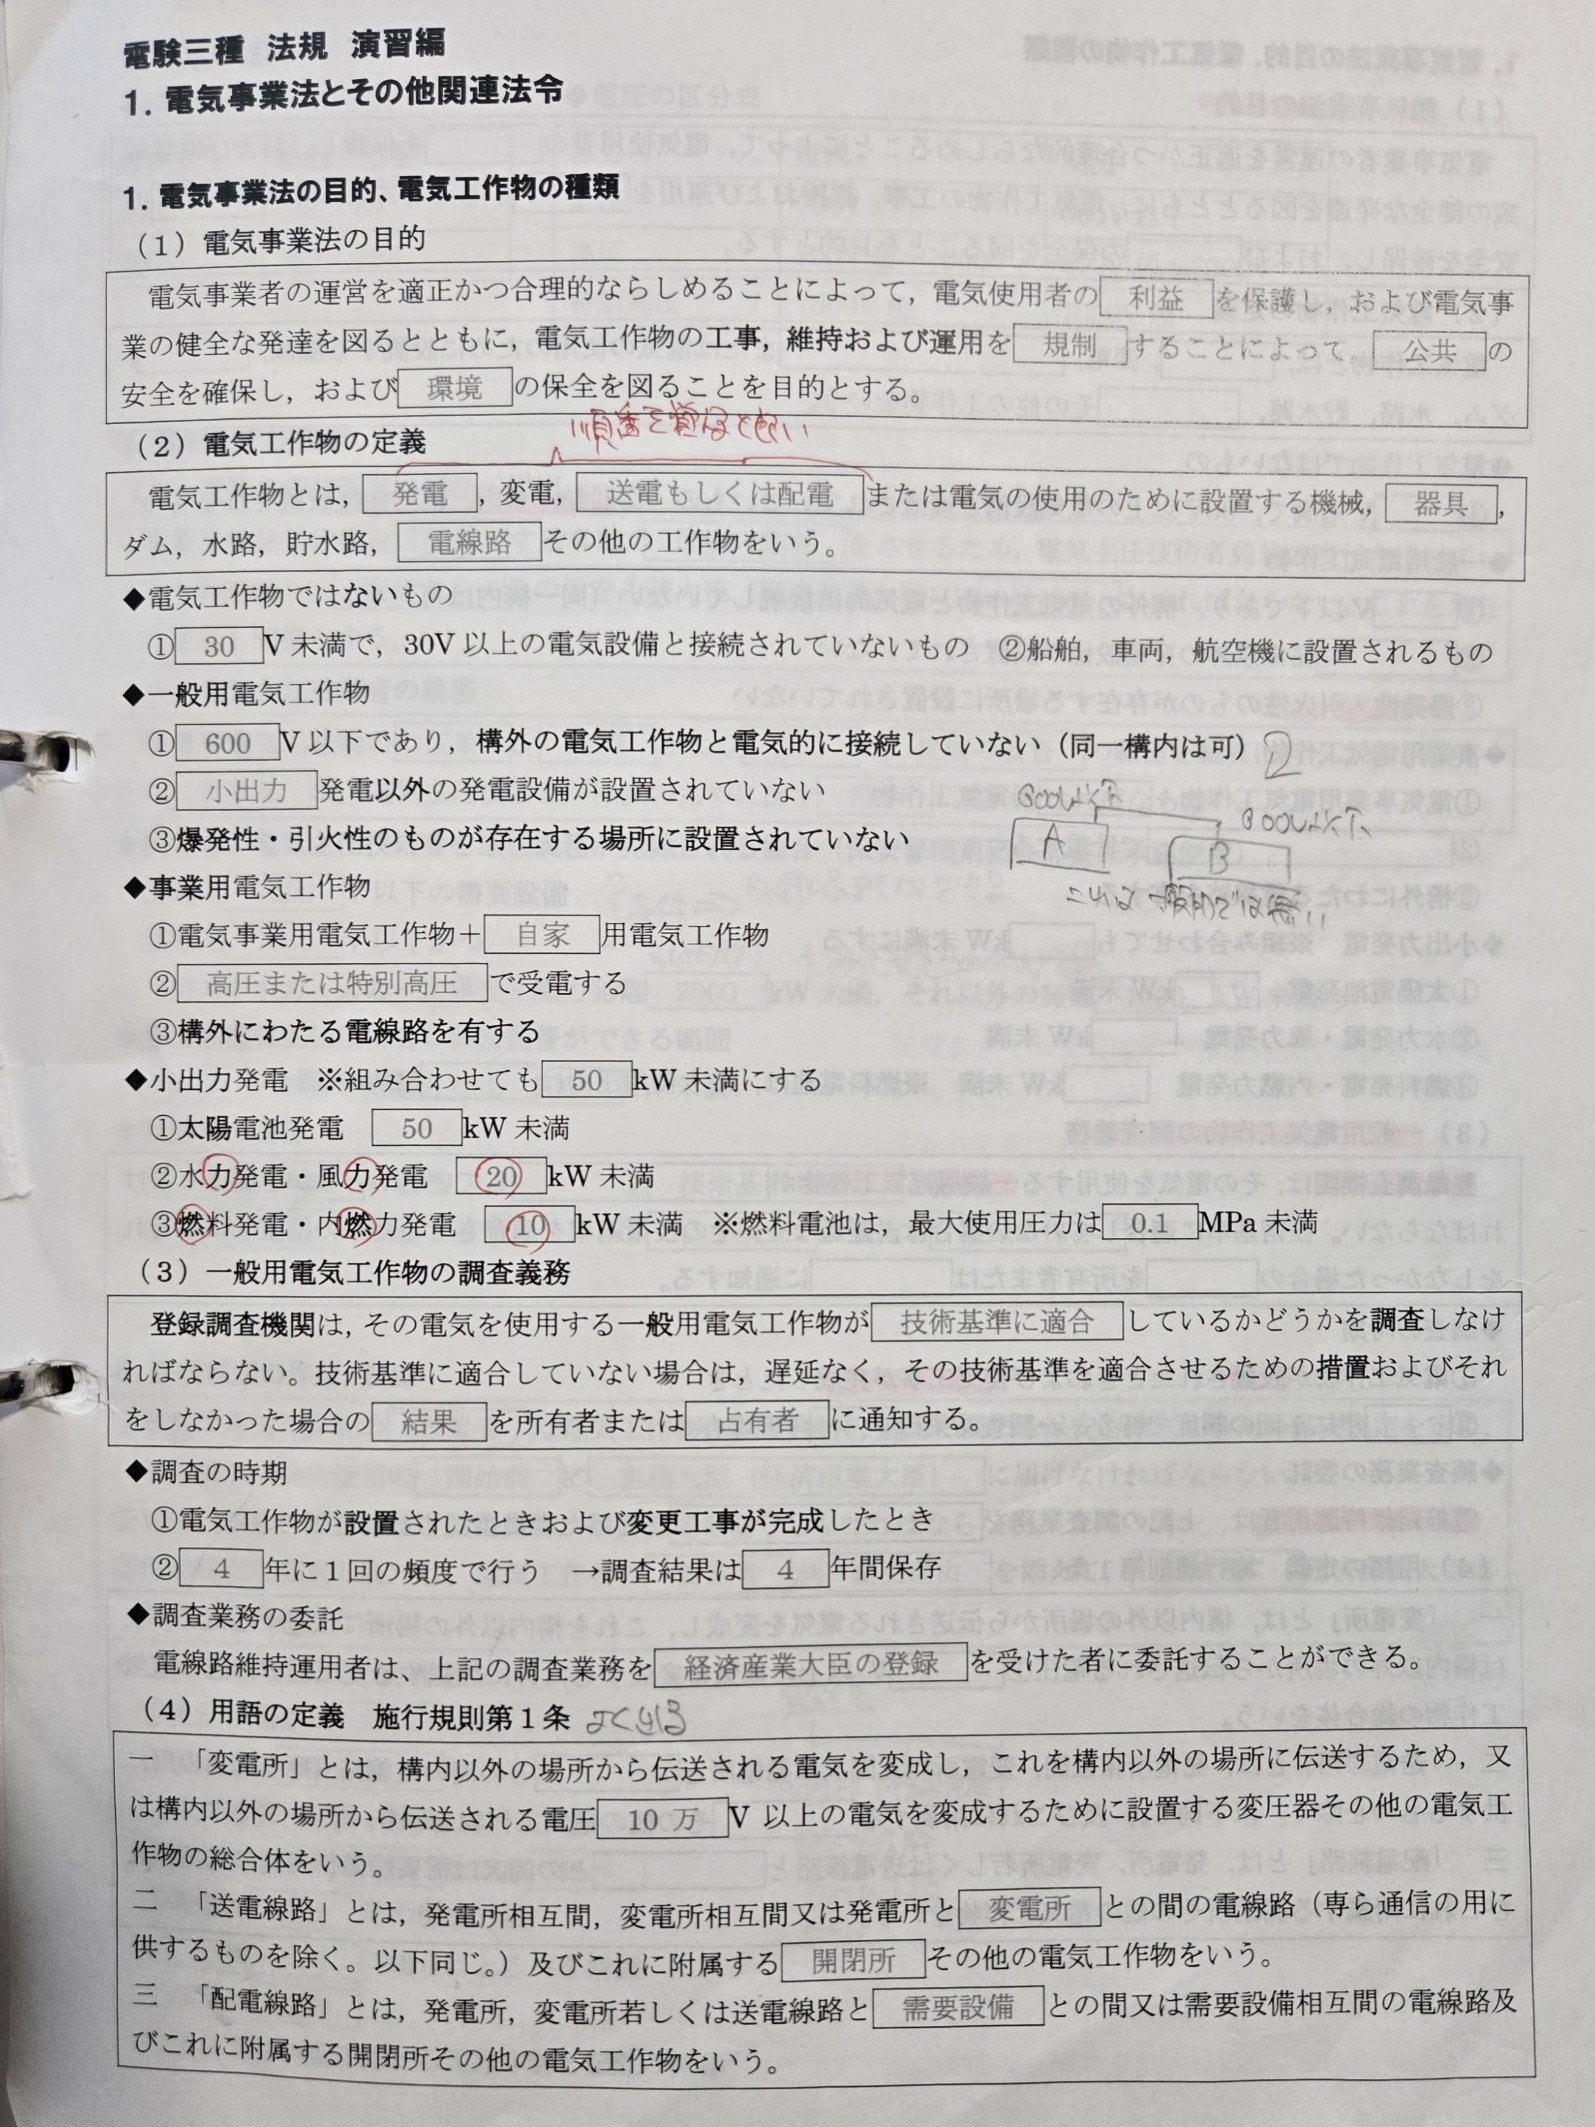 電験三種 法規 演習編
1. 電気事業法とその他関連法令
1. 電気事業法の目的、電気工作物の種類
(1) 電気事業法の目的
電気事業者の運営を適正かつ合理的ならしめることによって，電気使用者の 利益 を保護し，および電気事
業の健全な発達を図るとともに，電気工作物の工事，維持および運用を 規制 することによって，公共 の
安全を確保し，および 環境 の保全を図ることを目的とする。
(2) 電気工作物の定義
電気工作物とは， 発電 ，変電， 送電もしくは配電 または電気の使用のために設置する機械， 器具 ，
ダム，水路，貯水路， 電線路 その他の工作物をいう。
◆電気工作物ではないもの
① 30 V 未満で，30V 以上の電気設備と接続されていないもの ②船舶，車両，航空機に設置されるもの
◆一般用電気工作物
① 600 V 以下であり，構外の電気工作物と電気的に接続していない（同一構内は可）
② 小出力 発電以外の発電設備が設置されていない
600V以下
③爆発性・引火性のものが存在する場所に設置されていない
A
600V以下
B
◆事業用電気工作物
これは一般用では無い
①電気事業用電気工作物＋ 自家 用電気工作物
② 高圧または特別高圧 で受電する
③構外にわたる電線路を有する
◆小出力発電 ※組み合わせても 50 kW 未満にする
①太陽電池発電 50 kW 未満
②水力発電・風力発電 20 kW 未満
③燃料発電・内燃力発電 10 kW 未満 ※燃料電池は，最大使用圧力は 0.1 MPa 未満
(3) 一般用電気工作物の調査義務
登録調査機関は，その電気を使用する一般用電気工作物が 技術基準に適合 しているかどうかを調査しなけ
ればならない。技術基準に適合していない場合は，遅延なく，その技術基準を適合させるための措置およびそれ
をしなかった場合の 結果 を所有者または 占有者 に通知する。
◆調査の時期
①電気工作物が設置されたときおよび変更工事が完成したとき
② 4 年に１回の頻度で行う →調査結果は 4 年間保存
◆調査業務の委託
電線路維持運用者は、上記の調査業務を 経済産業大臣の登録 を受けた者に委託することができる。
(4) 用語の定義 施行規則第１条 よく出る
一 「変電所」とは，構内以外の場所から伝送される電気を変成し，これを構内以外の場所に伝送するため，又
は構内以外の場所から伝送される電圧 10 万 V 以上の電気を変成するために設置する変圧器その他の電気工
作物の総合体をいう。
二 「送電線路」とは，発電所相互間，変電所相互間又は発電所と 変電所 との間の電線路（専ら通信の用に
供するものを除く。以下同じ。）及びこれに附属する 開閉所 その他の電気工作物をいう。
三 「配電線路」とは，発電所，変電所若しくは送電線路と 需要設備 との間又は需要設備相互間の電線路及
びこれに附属する開閉所その他の電気工作物をいう。